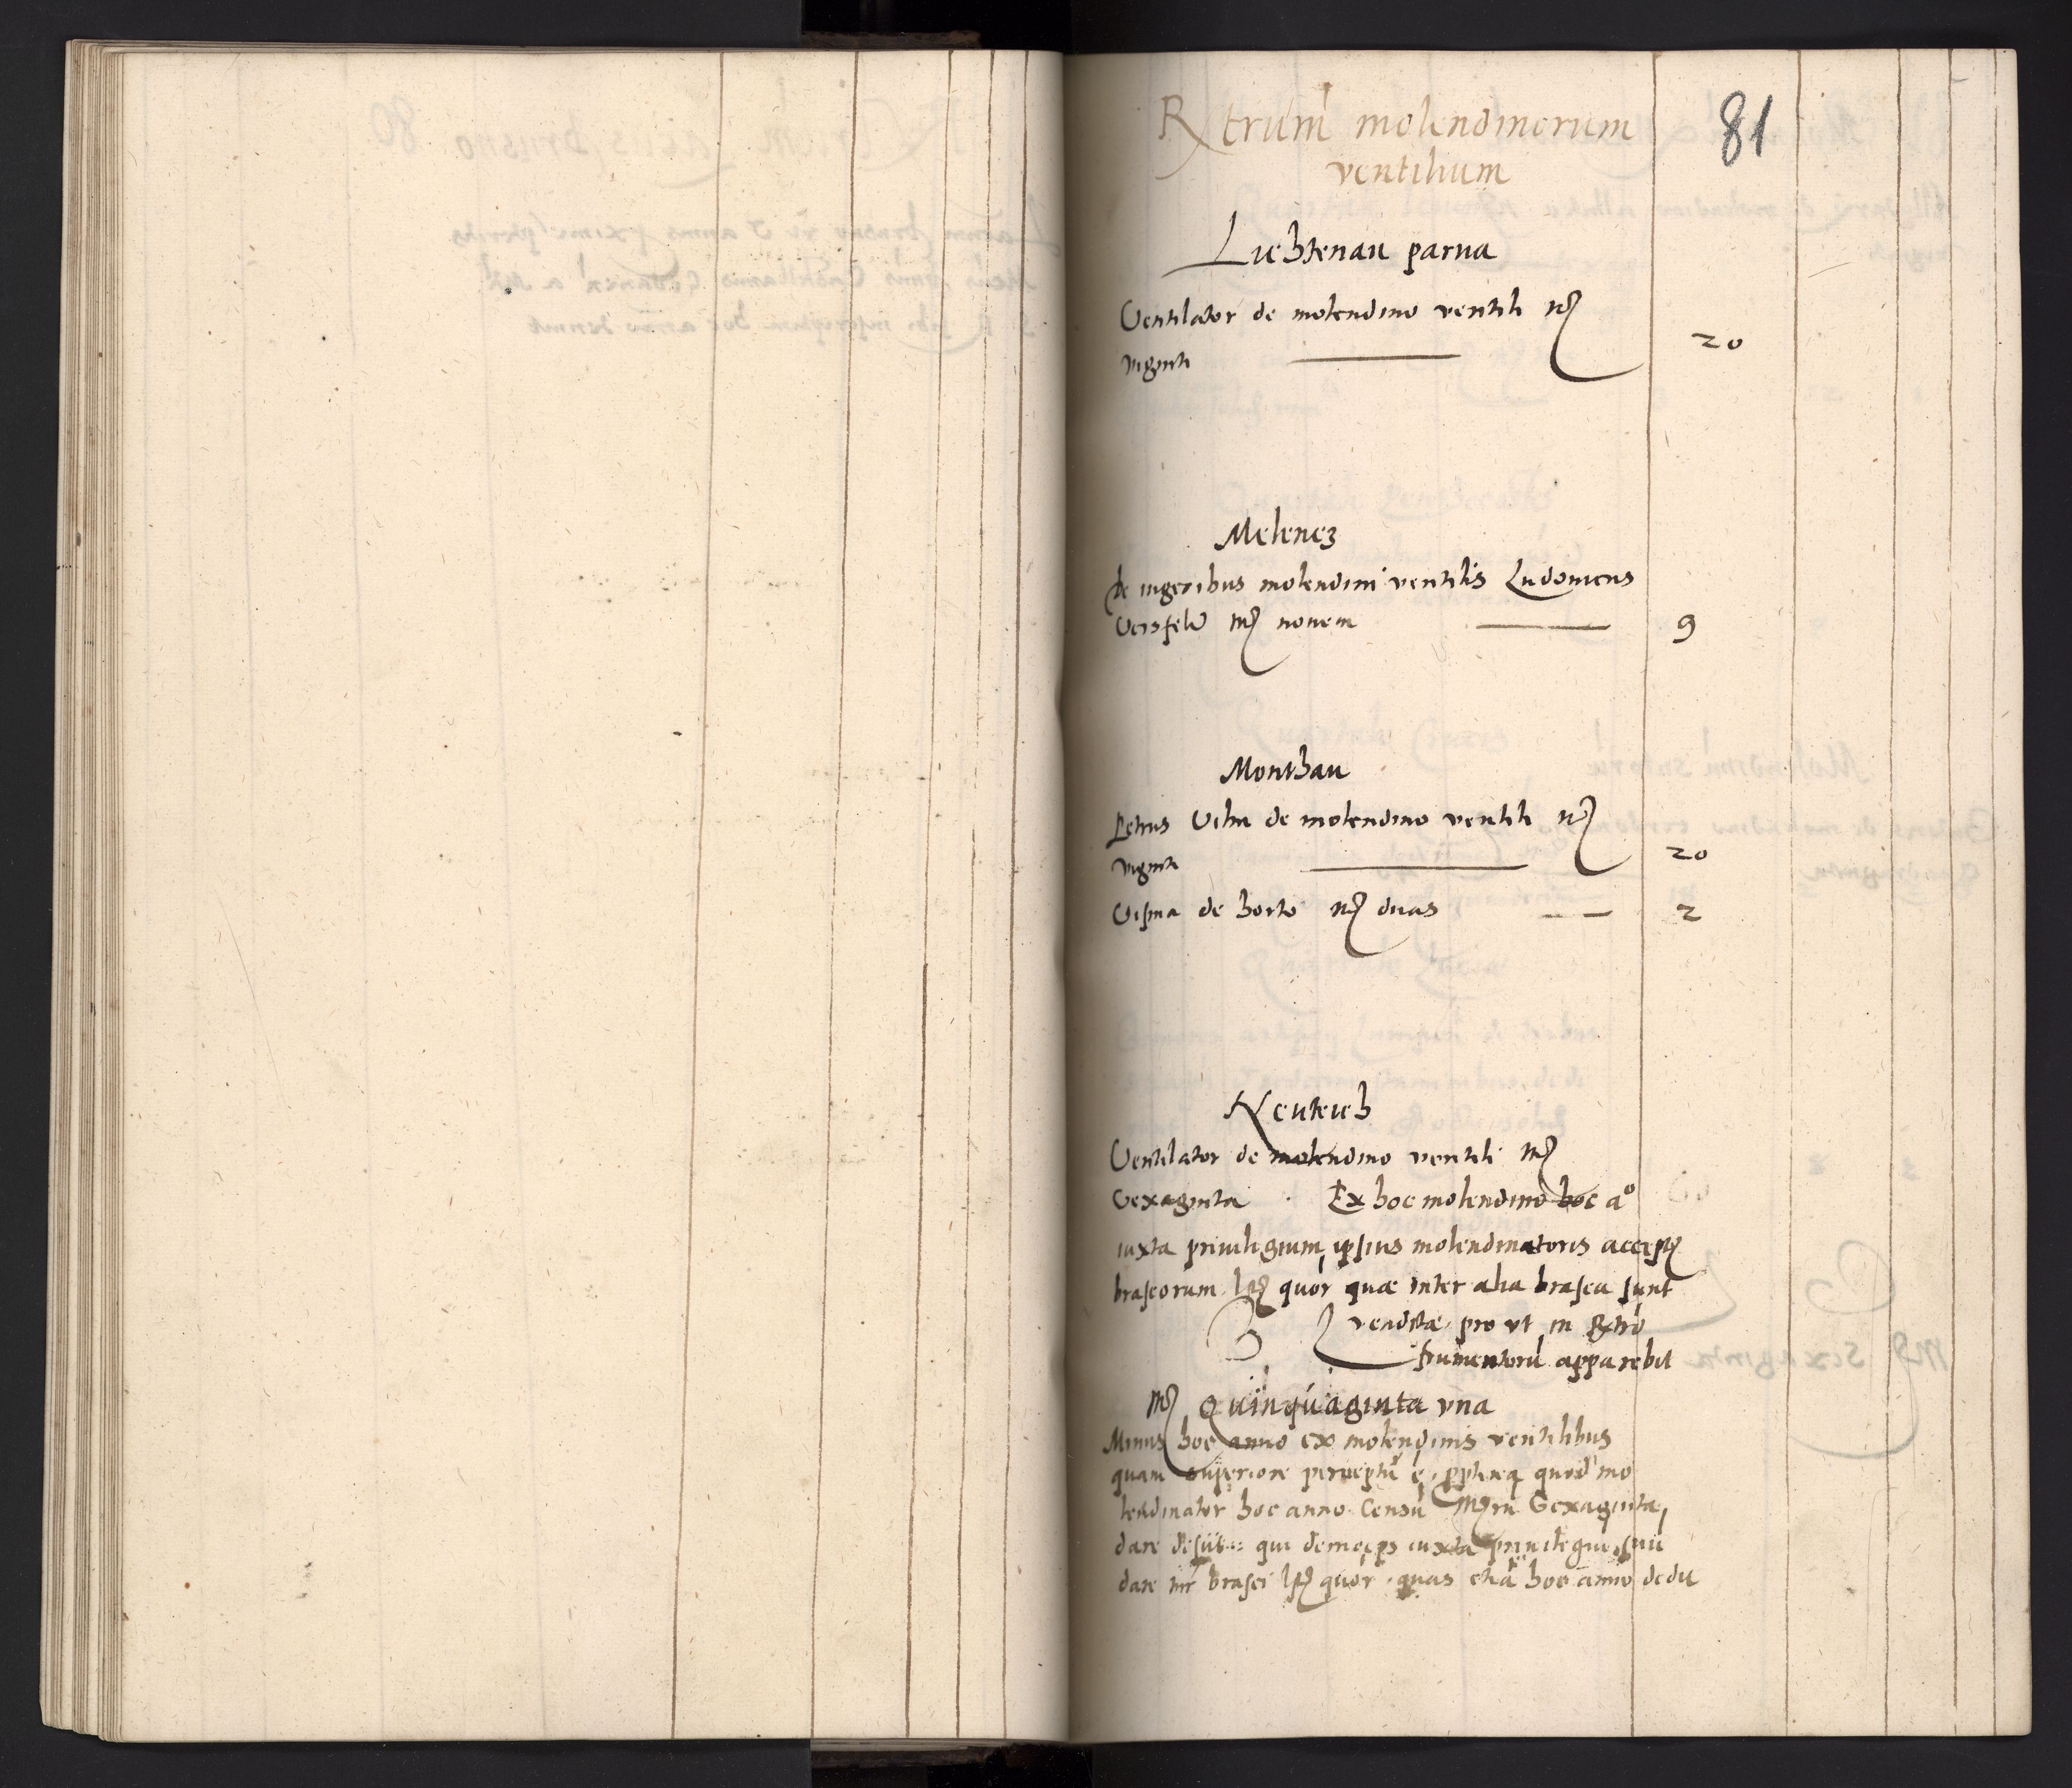 Rtrum molendinorum
81
ventilium
Liechtenau parua
Ventilator de molendino ventili mr
viginti 20
Melencz
de iugeribus molendini ventilis Ludouicus
Versfelt mr nouem 9
Monthau
Petrus Vilm de molendino ventili mr
viginti 20
de horto mr duas 2
Neuteich
Ventilator de molendino ventili mr
sexaginta Ex hoc molendino hoc a°
iuxta priuilegium ipsius molendinatoris accepti
braseorum lst quor quae inter alia brasea sunt
venditae pro ut in Rtro
frumentorũ apparebit
mr Quinquaginta vna
Minus hoc anno ex molendinis ventilibus
quam superiore perceptũ e, pptereaq quod mo
lendinator hoc anno censũ mrũ Sexaginta,
dare desiit qui deinceps iuxta priuilegiũ suũ
dare brasei lst quor quas etiã hoc anno dedit